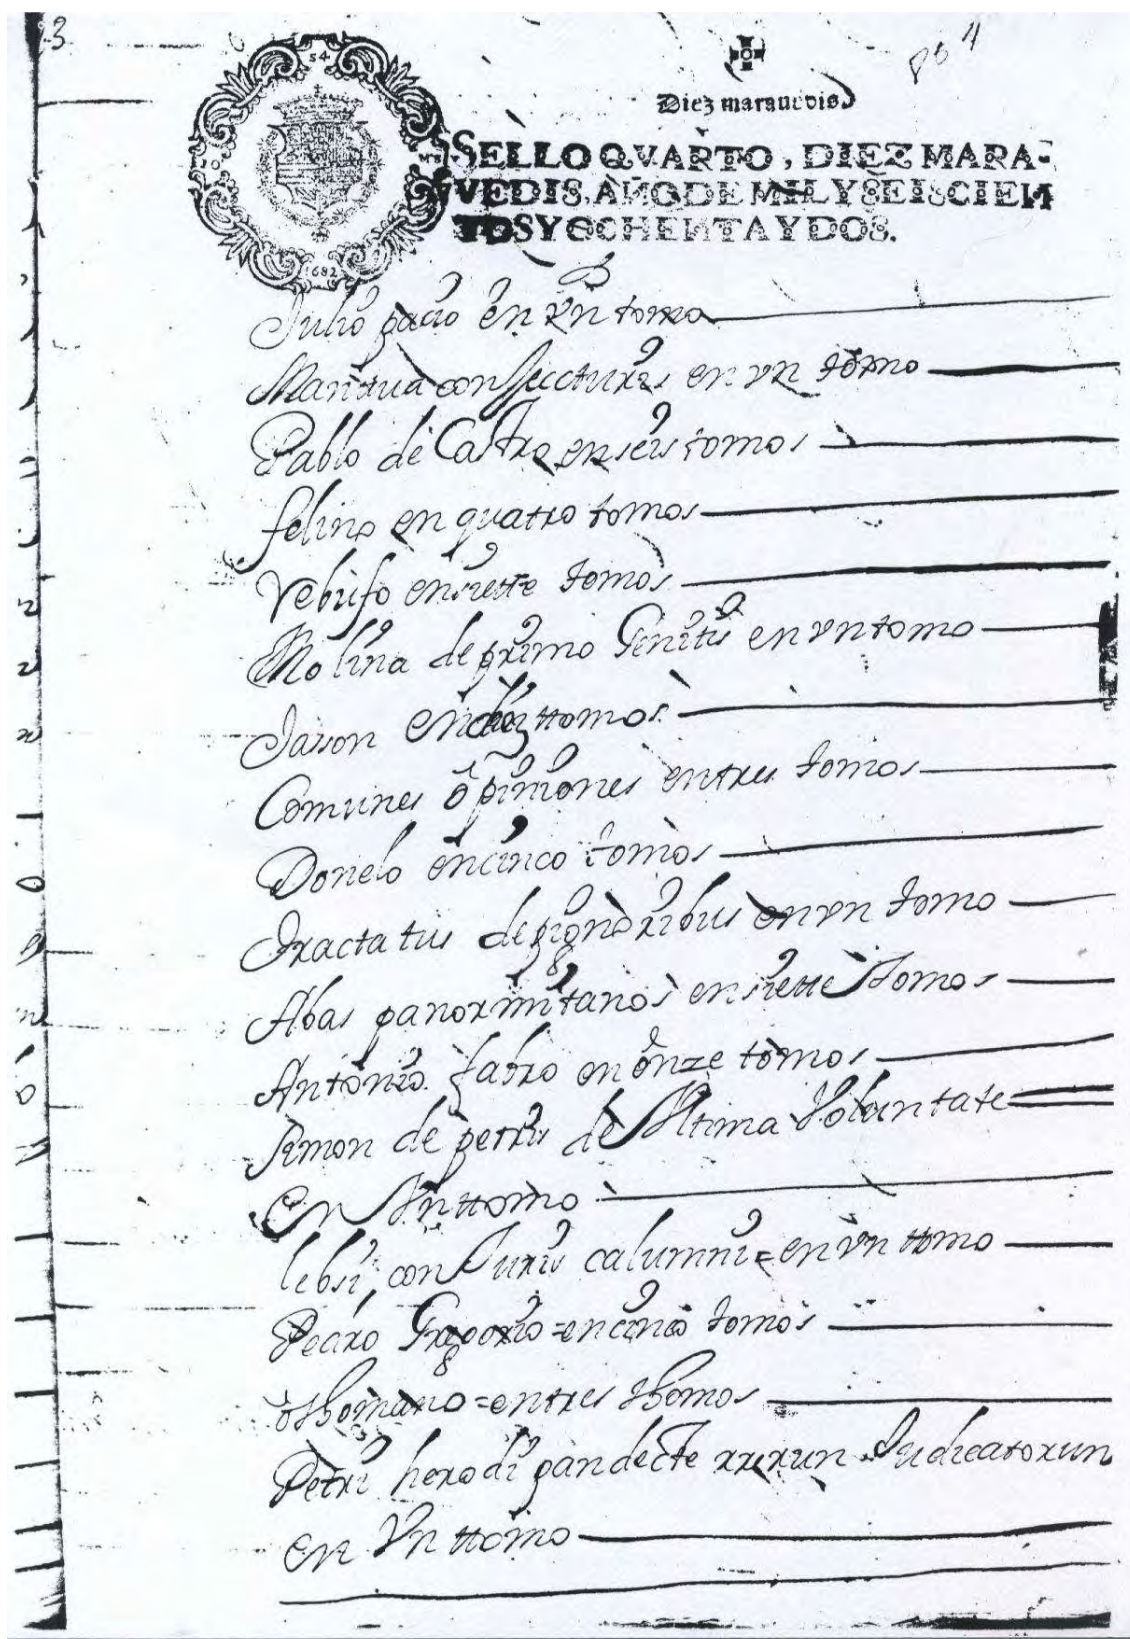 3
804
Diez marauedis
SELLO QVARTO, DIEZ MARA-
VEDIS, AÑO DE MIL Y SEISCIEN
TOS Y OCHENTA Y DOS.
1682
Julio pacio en Vn tomo
Mantua conjeccturis en vn tomo
Pablo de Castro en seis tomos
felino en quatro tomos
Vebufo en siette tomos
Molina de primo Genitis en vn tomo
Jason en diez ttomos
Comunes opiniones en tres tomos
Donelo en cinco tomos
Tractatus de pignoribus en vn tomo
Abas panormitanos en siette tomos
Antonio fabro en onze tomos
Simon de pettris de Vltima Voluntate
en Vn ttomo
lebsi, con Juris calumni = en vn ttomo
Pedro Gregorio = en cinco tomos
othomano = en tres thomos
Petri herodi pandecte rrerun Judicatorun
en Vn ttomo